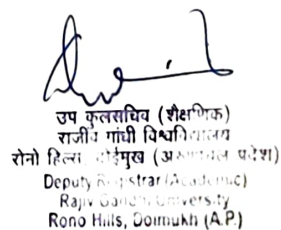 उप कुलसचिव (शैक्षणिक)
राजीव गांधी विश्वविद्यालय
रोनो हिल्स, दोईमुख (अरुणाचल प्रदेश)
Deputy Registrar (Academic)
Rajiv Gandhi University
Rono Hills, Doimukh (A.P.)